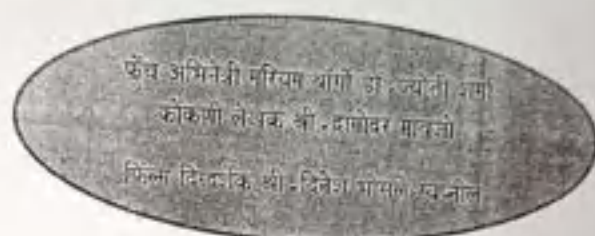 फ्रेंच अभिनेत्री मरियम बोर्गो डॉ. ज्योती शर्मा
कोकणी लेखक श्री. दामोदर मावजो
फिल्म दिग्दर्शक श्री. दिनेश भोसले